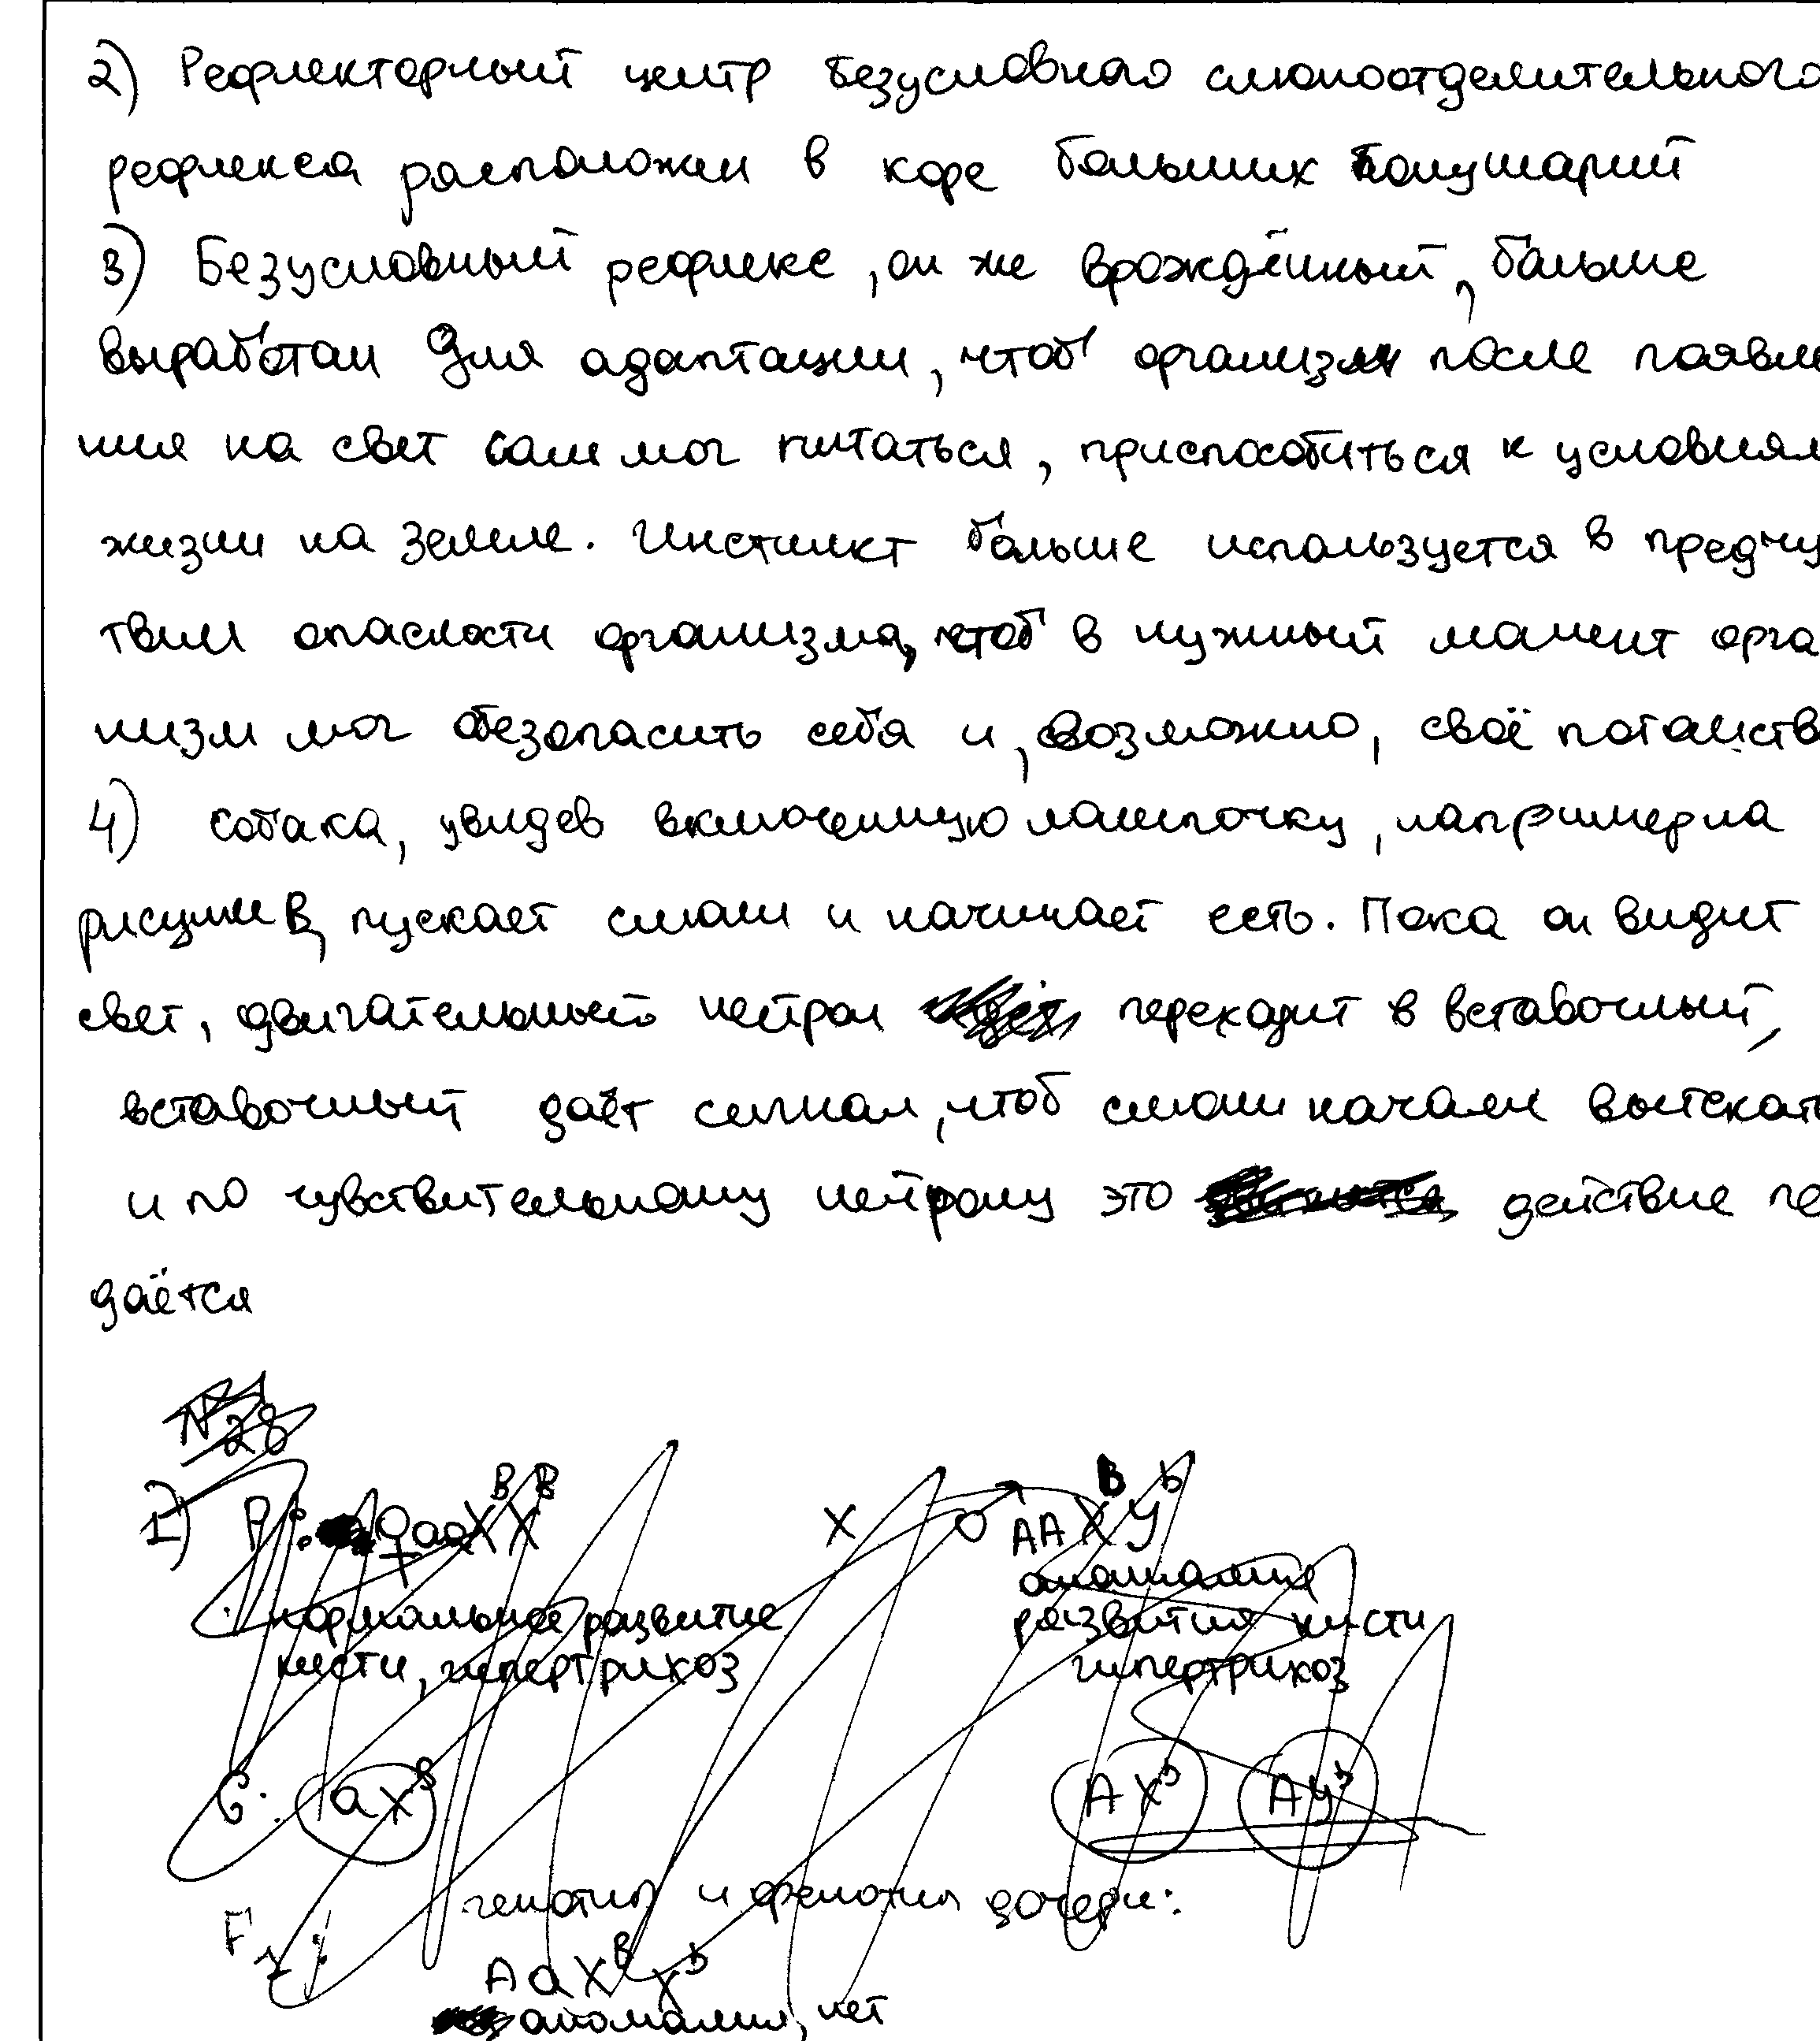 2) Рефлекторный центр безусловного слюноотделительного
рефлекса расположен в коре больших полушарий
3) Безусловный рефлекс, он же врождённый, больше
выработан для адаптации, чтоб организм после появле
ния на свет сам мог питаться, приспособиться к условиям
жизни на земле. Инстинкт больше используется в предчу
твии опасности организма, чтоб в нужный момент орга
низм мог обезопасить себя и, возможно, своё потомств
4) собака, увидев включенную лампочку, например на
рисунке В, пускает слюни и начинает есть. Пока он видит
свет, двигательный нейрон переходит в вставочный,
вставочный даёт сигнал, чтоб слюни начали вытекать
и по чувствительному нейрону это действие пе
даётся
№28
1) P: ♀aaXᴮXᴮ x ♂ AAXᴮYᵇ
нормальное развитие аномалия
кисти, гипертрихоз развития кисти
гипертрихоз
G: aXᴮ AXᵇ AYᵇ
F1: генотип и фенотип дочери:
AaXᴮXᵇ
аномалия, нет